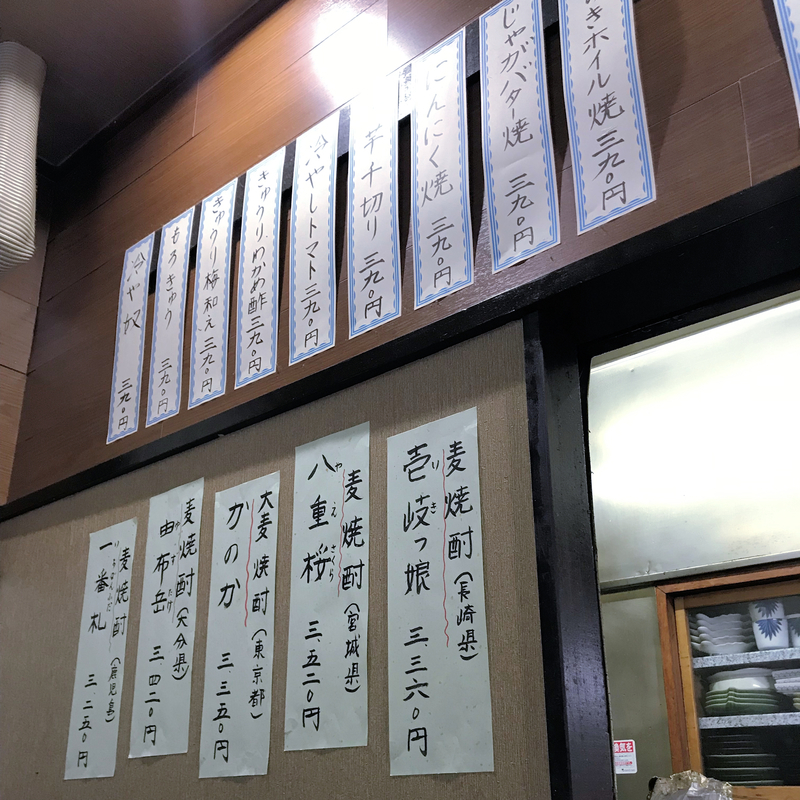 きホイル焼 三九〇円
じゃがバター焼 三九〇円
にんにく焼 三九〇円
芋千切り 三九〇円
冷やしトマト 三九〇円
きゅうりわかめ酢 三九〇円
きゅうり梅和え 三九〇円
もろきゅう 三九〇円
冷や奴 三九〇円
麦焼酎(長崎県)
壱岐っ娘 三、三六〇円
いき
麦焼酎(宮城県)
八重桜 三、五二〇円
やえざくら
大麦焼酎(東京都)
かのか 三、三五〇円
麦焼酎(大分県)
由布岳 三、四二〇円
麦焼酎(鹿児島)
一番札 三、二五〇円
換気を